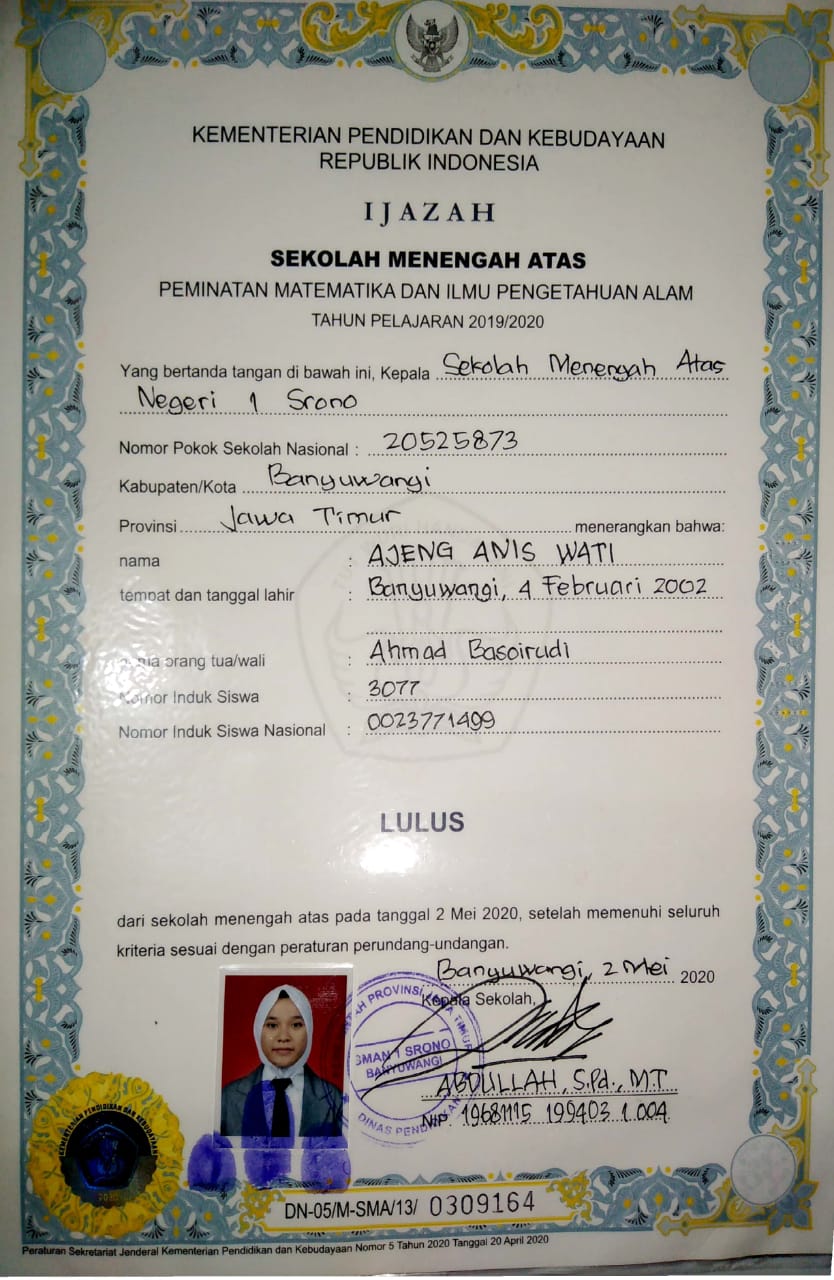 KEMENTERIAN PENDIDIKAN DAN KEBUDAYAAN
REPUBLIK INDONESIA
IJAZAH
SEKOLAH MENENGAH ATAS
PEMINATAN MATEMATIKA DAN ILMU PENGETAHUAN ALAM
TAHUN PELAJARAN 2019/2020
Yang bertanda tangan di bawah ini, Kepala Sekolah Menengah Atas
Negeri 1 Srono
Nomor Pokok Sekolah Nasional : 20525873
Kabupaten/Kota Banyuwangi
Provinsi Jawa Timur menerangkan bahwa:
nama : AJENG ANIS WATI
tempat dan tanggal lahir : Banyuwangi, 4 Februari 2002
orang tua/wali : Ahmad Basoirudi
Nomor Induk Siswa : 3077
Nomor Induk Siswa Nasional : 0023771499
LULUS
dari sekolah menengah atas pada tanggal 2 Mei 2020, setelah memenuhi seluruh
kriteria sesuai dengan peraturan perundang-undangan.
Banyuwangi, 2 Mei 2020
Kepala Sekolah,
PROVINSI JAWA TIMUR
SMAN 1 SRONO
BANYUWANGI
DINAS PENDIDIKAN
ABDULLAH, S.Pd., M.T
NIP. 19681115 199403 1 004
KEMENTERIAN PENDIDIKAN DAN KEBUDAYAAN
DN-05/M-SMA/13/ 0309164
Peraturan Sekretariat Jenderal Kementerian Pendidikan dan Kebudayaan Nomor 5 Tahun 2020 Tanggal 20 April 2020